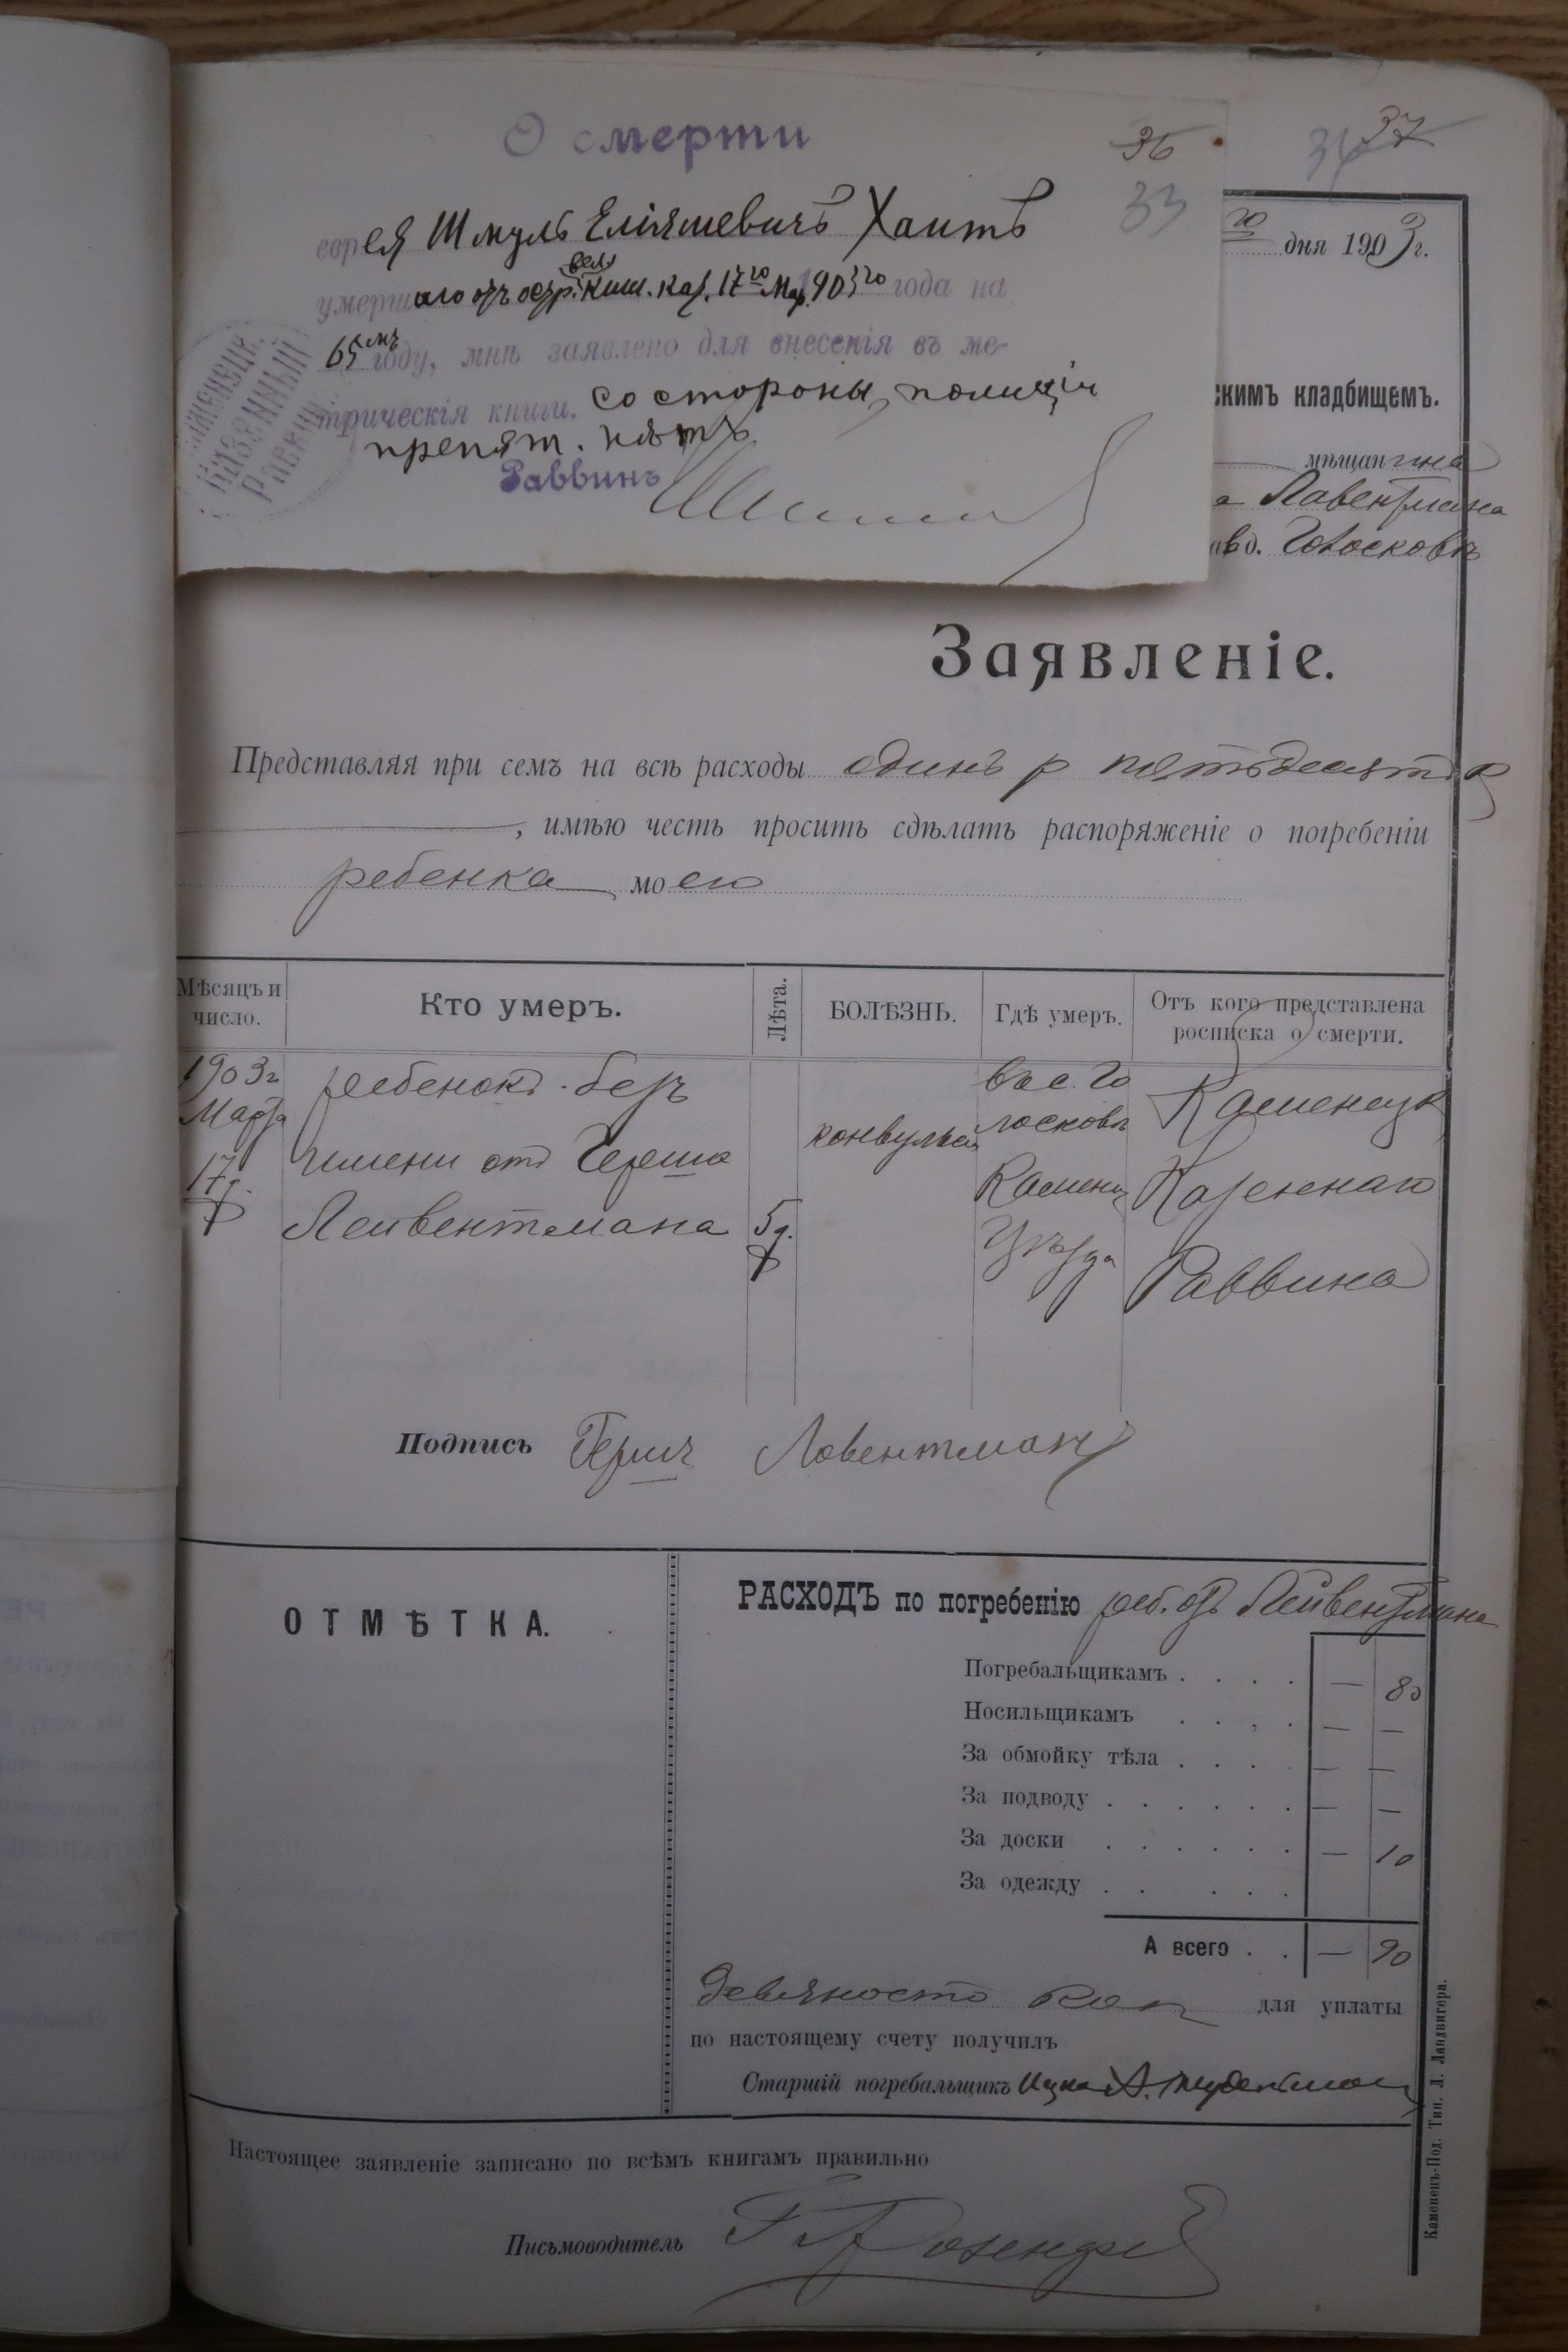 О смерти
36
33
37
еврея Шмуль Еліяшевичъ Хаитъ
умершаго отъ остр. киш. кат. 17го Мар. 903го года на
65мъ году, мнѣ заявлено для внесенія въ ме-
трическія книги. со стороны полиціи
препят. нѣтъ
Раввинъ
КАМЕНЕЦК.
КАЗЕННЫЙ
РАВВИНЪ
го дня 1903г.
скимъ кладбищемъ.
мѣщанина
Лавентмана
Голосковѣ
Заявленіе.
Представляя при семъ на всѣ расходы одинъ р пятьдесятъ к
, имѣю честь просить сдѣлать распоряженіе о погребеніи
ребенка моего
Мѣсяцъ и число. Кто умеръ. Лѣта. БОЛѢЗНЬ. Гдѣ умеръ. Отъ кого представлена росписка о смерти.
1903г ребенокъ безъ въ с. Го Каменецк
Марта имени отъ Герша конвульсіи лосковѣ Казеннаго
17 Лейвентмана 5д. Каменец Раввина
Уѣзда
Подпись Гершъ Ловентманъ
ОТМѢТКА.
РАСХОДЪ по погребенію реб. отъ Лейвентмана
Погребальщикамъ . . . . — 80
Носильщикамъ . . , . — —
За обмойку тѣла . . . . — —
За подводу . . . . . . — —
За доски . . . . . . — 10
За одежду . . . . .
А всего . . — 90
девяносто коп для уплаты
по настоящему счету получилъ
Старшій погребальщикъ
Настоящее заявленіе записано по всѣмъ книгамъ правильно
Письмоводитель
Каменецъ-Под. Тип. Л. Ландвигера.